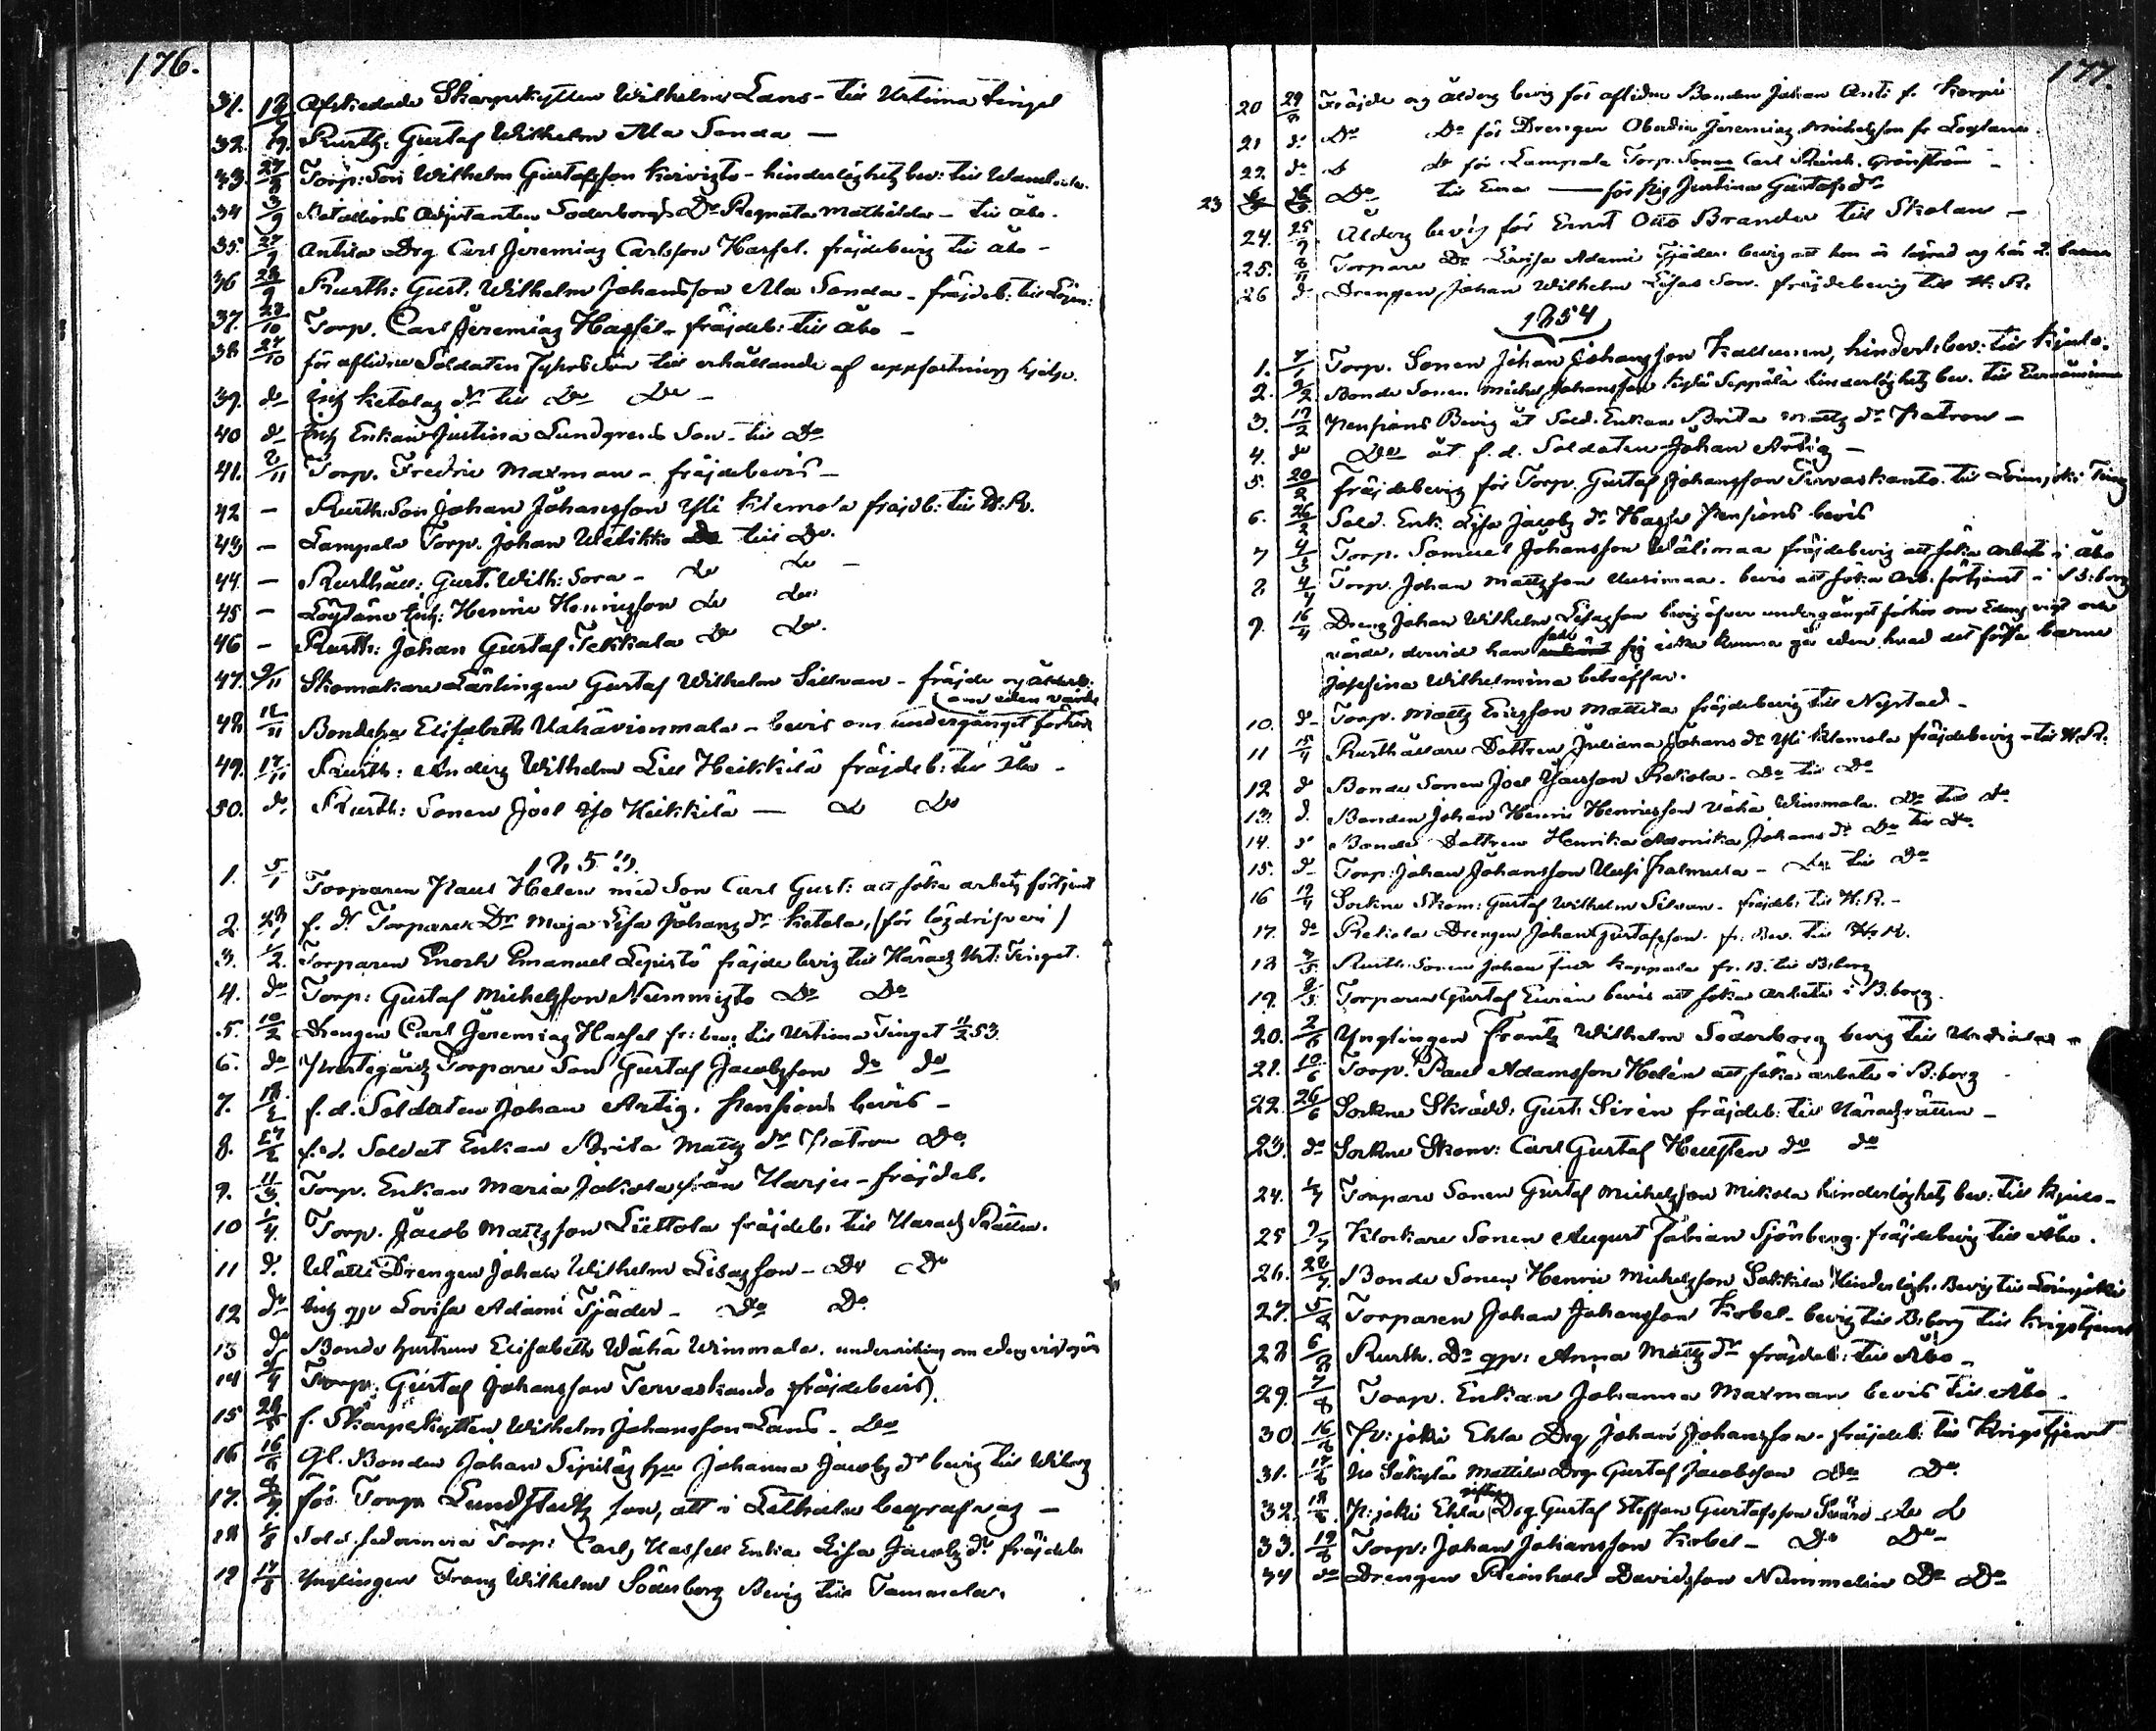 176.
31. 18/9 Afskedade Skarpskytten Wilhelm Lans - till Urtima tinget
32. 19. Rusth: Gustaf Wilhelm Ala Sonda —
33. 27/8 Torp: Son Wilhelm Gustafsson Koivisto - hinderlöshets bev: till
34 3/9 Adjutanten Söderborgs Dr Regnata Mathilda - till Åbo.
35. 27/9 Antila Drg Carl Jeremias Carlsson Hassel. fräjdebevis till Åbo -
36 28/9 Rusth: Gust. Wilhelm Johansson Ala Sonda - fräjdeb: till
37. 23/10 Torp. Carl Jeremias Hassel - fräjdeb: till Åbo -
38 27/10 för aflidne Soldaten Son till erhållande af uppfostrings hjelp.
39. do Inh Ketolas dr till Do Do -
40 do Inh Enkan Justina Lundgrens Son - till Do
41. 2/11 Torp. Fredric Maxman - fräjdebevis -
42 — Rusth: Son Johan Johansson Yli Klemola fräjdb: till H. R.
43 — Lampola Torp. Johan till Do.
44. — Rusthåll: Gust. Wilh: Sora - Do Do -
45 — Inh: Henric Henricsson Do Do
46 — Rusth: Johan Gustaf Tekkala Do Do.
47. 9/11 Skomakare Lärlingen Gustaf Wilhelm Sillvan - fräjde og
om eden värde
48 12/11 Bondehu Elisabeth - bevis om undergånget förhör
49. 17/11 Rusth: Anders Wilhelm Lill Heikkilä fräjdeb: till Åbo -
50. do. Rusth: Sonen Joel Iso Heikkilä — Do Do
1853.
1. 5/1 Torparen Paul Helen med Son Carl Gust: att söka arbets förtjenst
2. 23/1 f. d. Torpare Dr Maja Lisa Johans dr Ketola, (för lösdrifveri)
3. 1/2. Torparen Enoch Emanuel Lepistö fräjde bevis till Härads Urt: Tinget.
4. do Torp: Gustaf Michelsson Nummisto Do Do
5. 10/2 Drengen Carl Jeremias Hassel fr: bev: till Urtima Tinget 11/2 53.
6. do Prestegårds Torpare Son Gustaf Jacobsson do do
7. 18/2 f. d. Soldaten Johan Artig. Pensions bevis -
8. 27/2 f. d. Soldat Enkan Brita Matts dr Patron Do
9. 11/3. Torp. Enkan Maria Jakola från Harju - fräjdeb.
10 1/4. Torp. Jacob Mattsson Liettola fräjdeb: till Harads Rätten.
11 d. Drengen Johan Wilhelm Lisasson - Do Do
12 do Inh qp Lovisa Adami Tjäder - Do Do
13 do Bonde hustrun Elisabeth Wähä Wimmala. undervisning om edens vigt
14 Torp: Gustaf Johansson Tervaskanto fräjdebevis.
15 f. Skarpskytten Wilhelm Johansson Lans - Do
16 16/6 Gl. Bonden Johan hu Johanna Jacobs dr bevis till
17. för Torp Lundstedts son, att i Letala begrafvas -
18 1/8 Sold. Torp: Carls Hassell Enka Lisa Jacobs dr fräjdeb
19 17/8 Ynglingen Franz Wilhelm Söderborg Bevis till Tammela.
177.
20 Fräjde og ålders bevis för aflidne Bonden Johan Antti f. Korpi
21 d: Do Do för Drengen Jeremias Michelsson fr
22. do do för Lampola Torp: Sonen Carl Grönström -
23 Do till Eura — för Pig Justina Gustafs dr
24. 25/9 Ålders bevis för Ernst Otto Brander till Skolan -
25. 8/11 Torpare Dr Lovisa Adami Tjäder: bevis att hon är lägrad og har 2. barn
26 d: Drengen Johan Wilhelm Lisas Son. fräjdebevis till H. R.
1854
1. 7/1 Torp. Sonen Johan Johansson Kallunen, hinderl: bev: till Kjulo.
2. 9/2 Bonde Sonen Michel Johansson Kylä Seppälä hinderlöshets bev. till Euraåminne
3. 17/2 Pensions Bevis åt Sold. Enkan Brita Matts dr Patron -
4. do Do åt f. d. Soldaten Johan Artig -
5. 20/2 fräjdebevis för Torp. Gustaf Johansson Tervaskanto. till Loimjoki Ting
6. 26/2 Sold. Enk. Lisa Jacobs dr Hassel Pensions bevis
7 4/3 Torp. Samuel Johansson Wälimaa fräjdebevis att söka arbete i Åbo
8 4/4 Torp. Johan Mattsson Uusimaa. bevis att söka Arb. förtjenst i B:borg
9. 16/4 Dreng Johan Wilhelm Lisasson bevis öfver undergånget förhör om Edens vigt och
värde, dervid han sade sig icke kunna gå eden hvad det första barnet
Josefina Wilhelmina beträffar.
10. d- Torp. Matts Ericsson Mattila fräjdebevis till Nystad -
11 15/4 Rusthållare Dottren Juliana Johans dr Yli Klemola fräjdebevis till H. R.
12 d Bonde Sonen Joel Rekola - Do till Do
13. d. Bonden Johan Henric Henricsson Vähä Wimmala. Do till do
14. d Bonde Dottren Henrika Johans dr Do till Do.
15. d- Torp: Johan Johansson Uusi - Do till Do
16 17/4 Sockne Skom: Gustaf Wilhelm Silvan - fräjdeb: till H. R. -
17. do Rekola Drengen Johan Gustafsson. fr. Bev. till H. R.
18 Rusth: Sonen Johan fr. B. till B:borg
19. Torparen Gustaf bevis att söka arbete i B.borg.
20. 2/6 Ynglingen Frantz Wilhelm Söderborg bevis till
21. 10/6 Torp. Paul Adamsson Helén att söka arbete i B:borg
22. 26/6 Sockne Skrädd: Gust. Sirén fräjdeb: till Häradsrätten -
23. do Sockne Skom: Carl Gustaf Hellsten do do
24. 1/7 Torpare Sonen Gustaf Michelsson Mikola hinderlöshets bev: till Kjulo -
25 Klockare Sonen August Fabian Sjönberg. fräjdebevis till Åbo.
26. 28/7. Bonde Sonen Henric Michelsson hinderlösh. Bevis till Loimjoki
27. 5/8 Torparen Johan Johansson Kobel - bevis till B:borg till krigstjenst
28 6/8 Rusth. Dr qp: Anna Matts dr fräjdeb: till Åbo -
29. 7/8 Torp. Enkan Johanna Maxman bevis till Åbo -
30. 16/8 joki Ekla Drg Johan Johansson - fräjdeb: till Krigstjenst
31. 17/8 Iso Säkylä Mattila Drg: Gustaf Jacobsson Do Do
32. 18/8 joki Ekla Drg Gustaf Steffan Gustafsson Svärd - Do Do
33. 19/8 Torp: Johan Johansson Kobel - Do Do -
34 do Drengen Reinhold Davidsson Nummelin Do Do